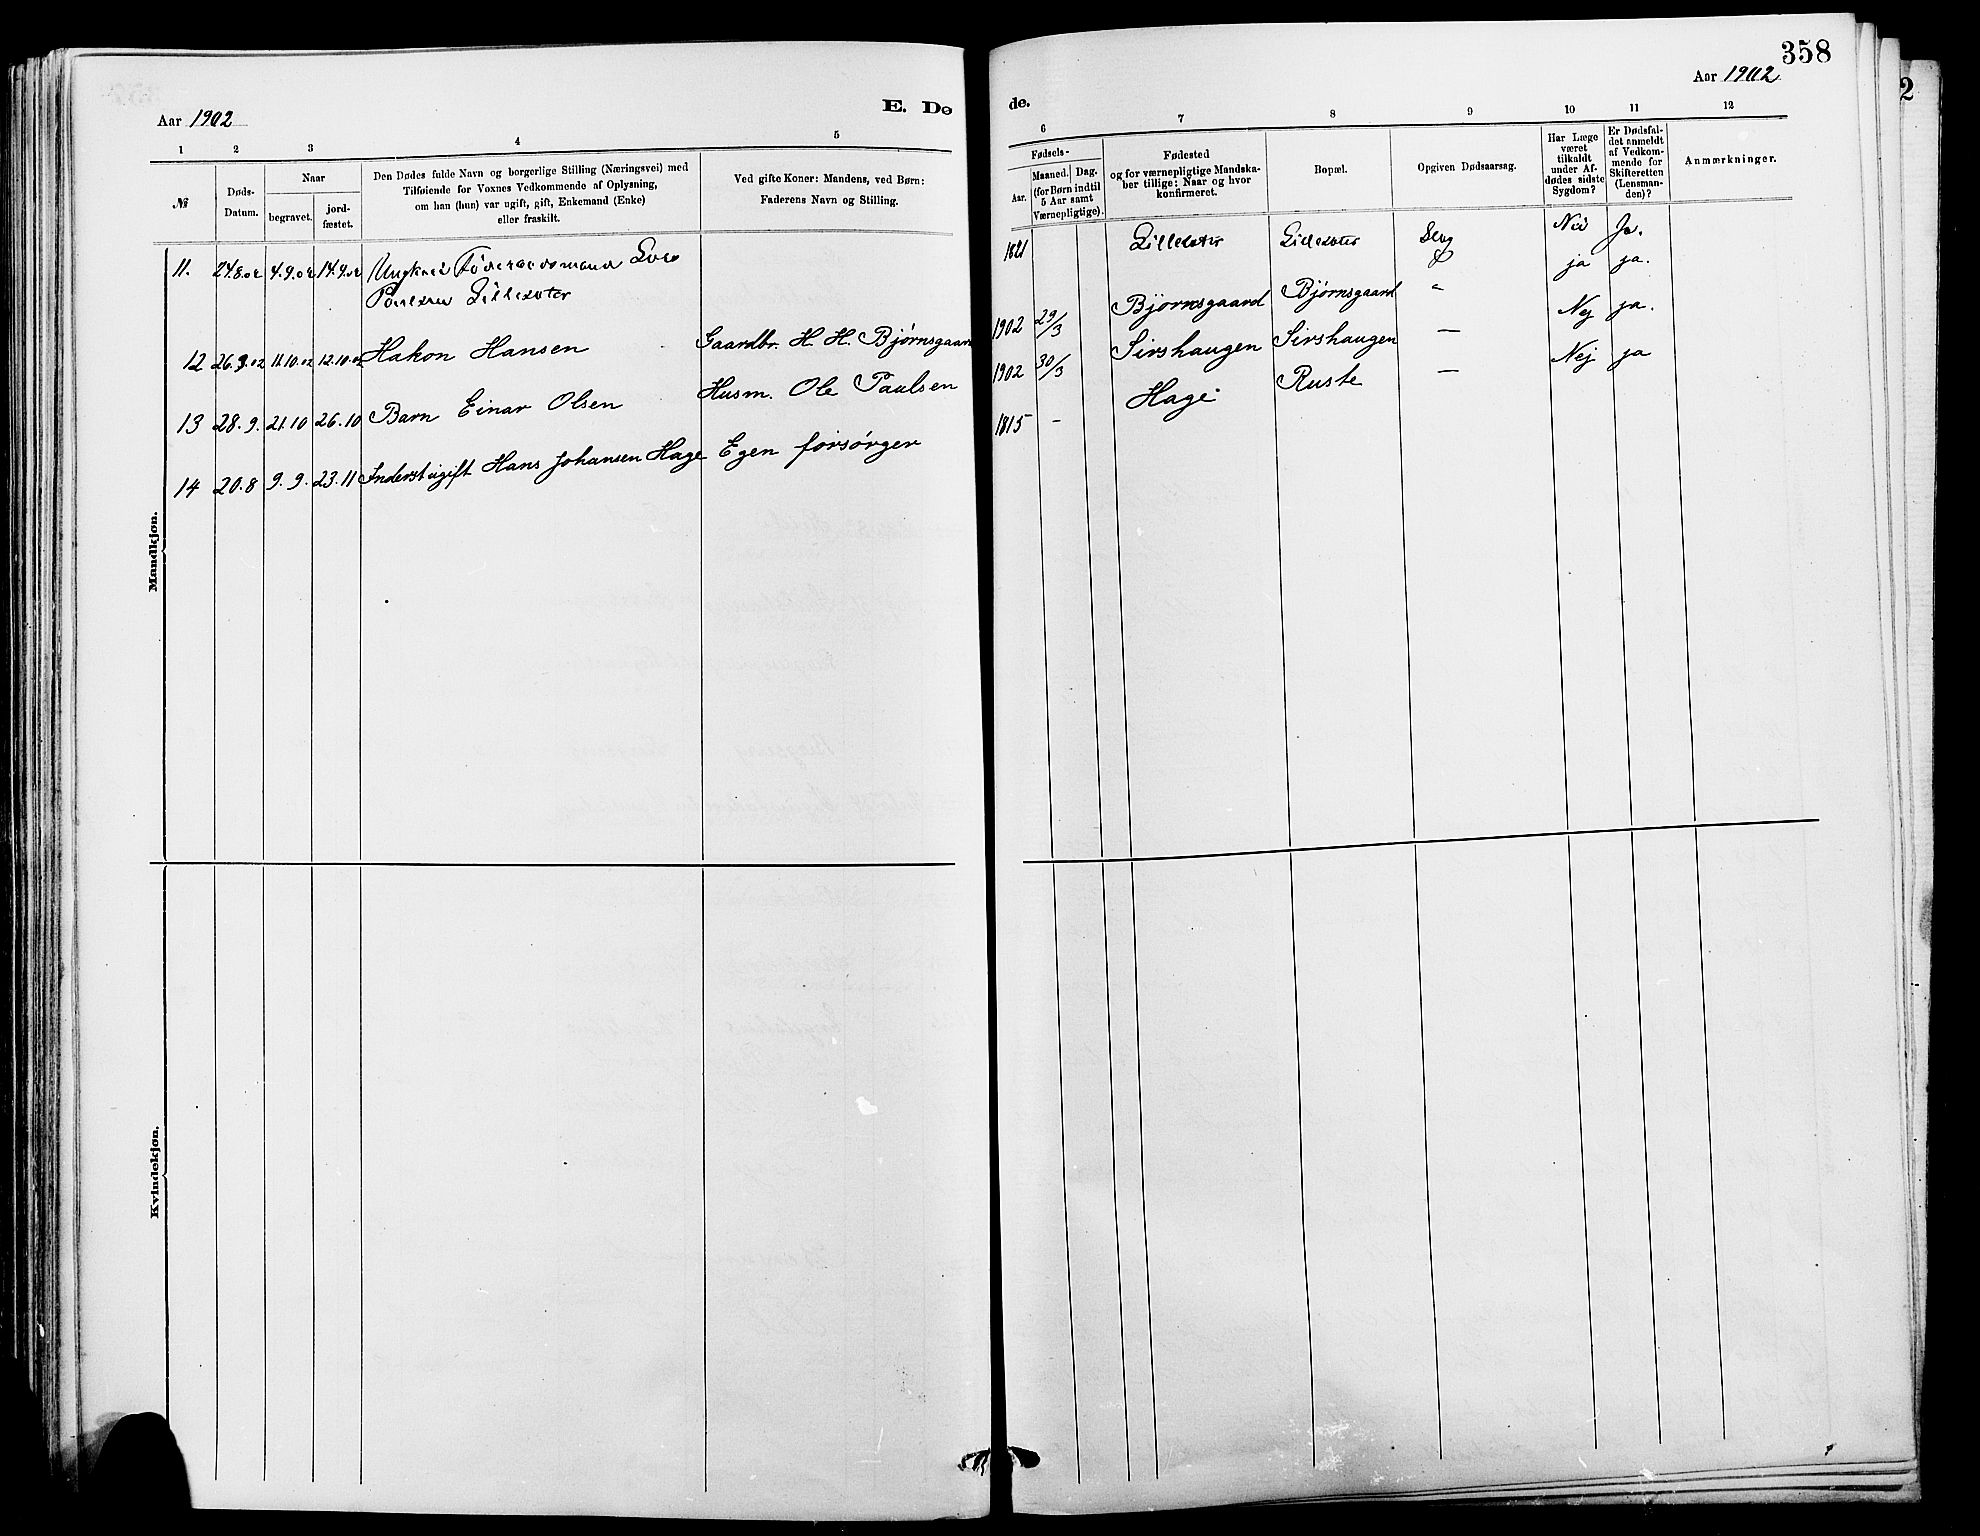 Aar 1902
E. Dø
1 2 3 4 5
№
Døds-
Datum.
Naar
begravet.
jord-
fæstet.
Den Dødes fulde Navn og borgerlige Stilling (Næringsvei) med
Tilføiende for Voxnes Vedkommende af Oplysning,
om han (hun) var ugift, gift, Enkemand (Enke)
eller fraskilt.
Ved gifte Koner: Mandens, ved Børn:
Faderens Navn og Stilling.
Mandkjøn.
11. 24.8.02 4.9.02 14.9.02 Ungkarl Føderaadsmand
Lillesæter
12 26.9.02 11.10.02 12.10.02 Hakon Hansen Gaardbr. H. H. Bjørnsgaard
13 28.9. 21.10 26.10 Barn Einar Olsen Husm. Ole Paulsen
14 20.8 9.9. 23.11 Inderst ugift Hans Johansen Hage Egen forsørger
Kvindekjøn.
358
Aar 1902
de.
6 7 8 9 10 11 12
Fødsels-
Aar.
Maaned. Dag.
(for Børn indtil
5 Aar samt
Værnepligtige).
Fødested
og for værnepligtige Mandska-
ber tillige: Naar og hvor
konfirmeret.
Bopæl.
Opgiven Dødsaarsag.
Har Læge
været
tilkaldt
under Af-
dødes sidste
Sygdom?
Er Dødsfal-
det anmeldt
af Vedkom-
mende for
Skifteretten
(Lensman-
den)?
Anmærkninger.
1821 Lillesæter Lillesæter Slag Nei Ja.
1902 29/3 Bjørnsgaard Bjørnsgaard " ja ja.
1902 30/3 Sirshaugen Sirshaugen — Nej ja.
1815 - Hage Ruste — Nej ja
2